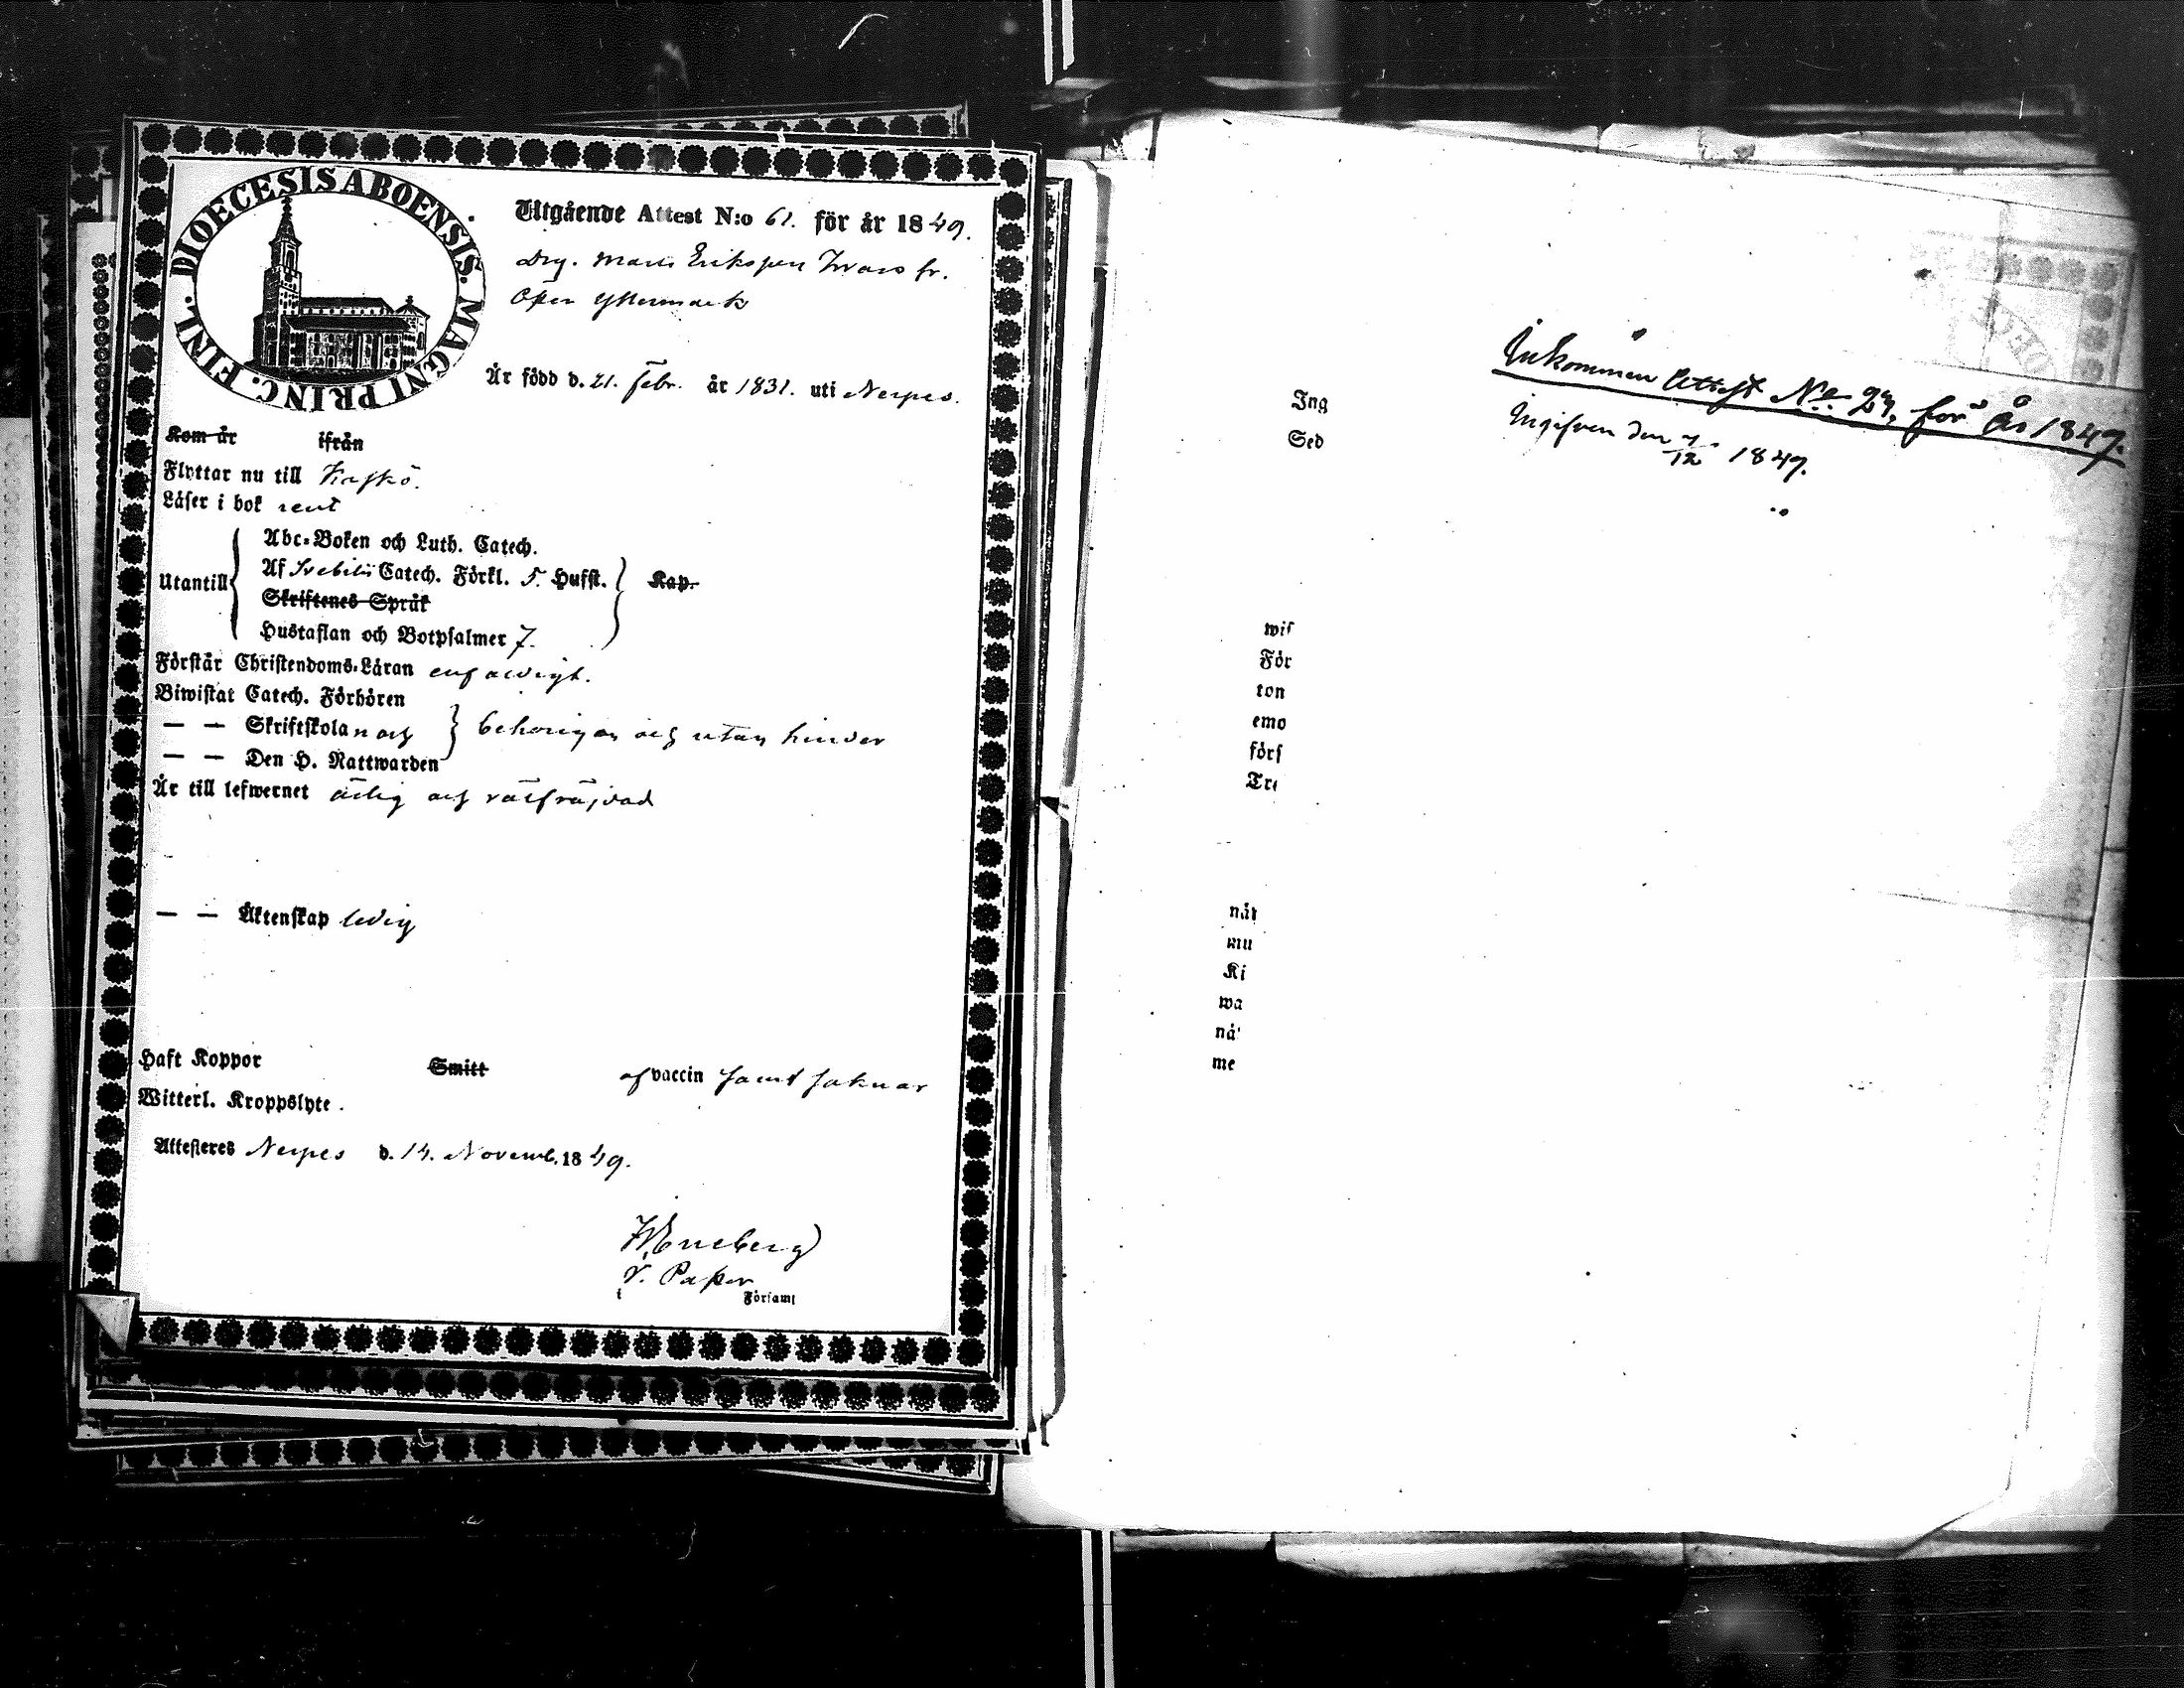 DIOECESIS ABOENSIS. MAGNI PRINC. FINL.
Utgående Attest N:o 61. för år 1849.
Drg. Mats Eriksson Zwars fr.
Öfver Yttermark
Är född d. 21. Febr. år 1831. uti Nerpes.
Kom år ifrån
Flyttar nu till Kaskö.
Läser i bok rent
Utantill
Abc-Boken och Luth. Catech.
Af Svebilii Catech. Förkl. 5. Hufst. Kap.
Skriftenes Språk
Hustaflan och Botpsalmer 7.
Förstår Christendoms-Läran enfaldigt.
Biwistat Catech. Förhören
— — Skriftskolan och behörigen och utan hinder
— — Den H. Nattwarden
Är till lefwernet ärlig och välfräjdad
— — Äktenskap ledig
Haft Koppor Smitt af vaccin samt saknar
Witterl. Kroppslyte.
Attesteres Nerpes d. 14. Novemb. 1849.
V. Pastor
i Församl
Inkommen Attest No 27, för År 1849.
Ingifven den 7/12 1849.
Ing
Sed
wis
För
ton
emo
förs
Tre
når
mu
Ki
wa
nå
me